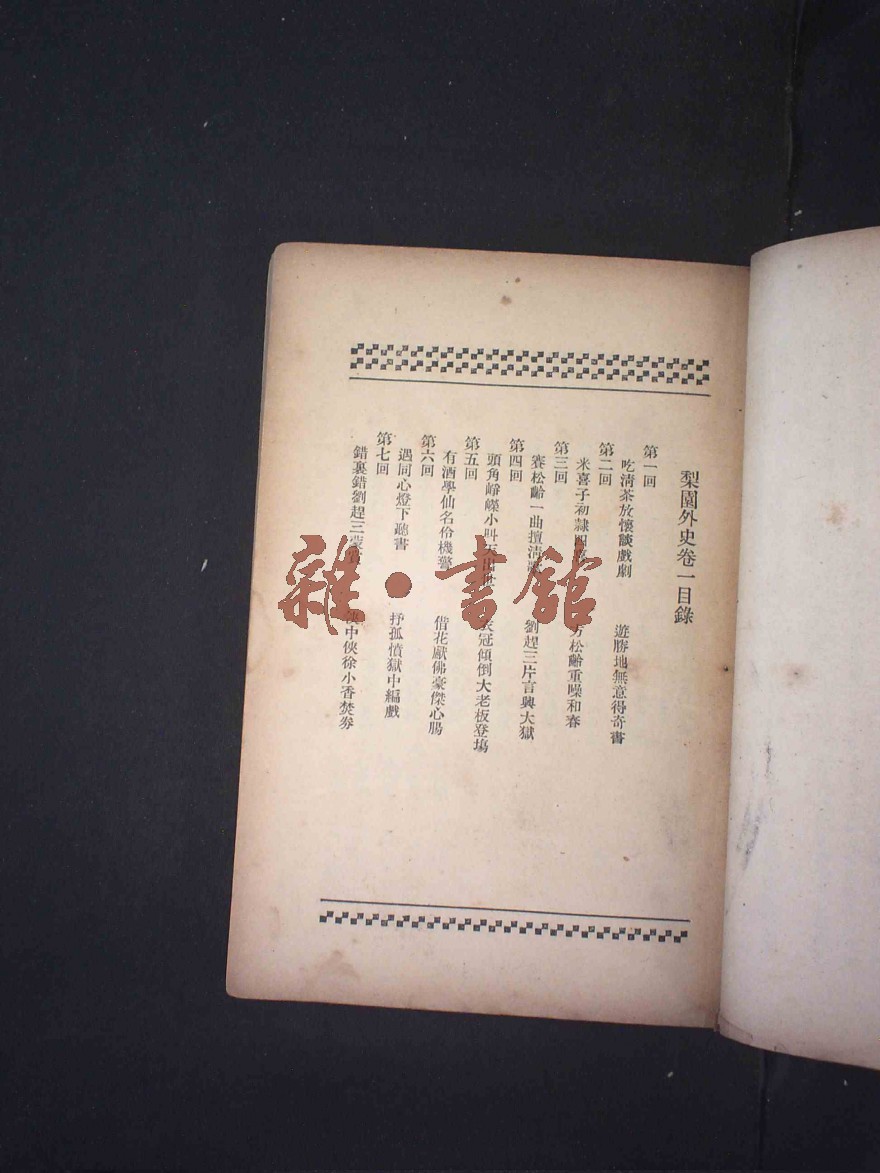 梨園外史卷一目錄
第一回
吃清茶放懷談戲劇 遊勝地無意得奇書
第二回
米喜子初隸四 方松齡重噪和春
第三回
賽松齡一曲擅清 劉趕三片言興大獄
第四回
頭角崢嶸小叫天出世 衣冠傾倒大老板登塲
第五回
有酒學仙名伶機警 借花獻佛豪傑心腸
第六回
遇同心燈下聽書 抒孤憤獄中編戲
第七回
錯裏錯劉趕三蒙 中俠徐小香焚券
雜·書館